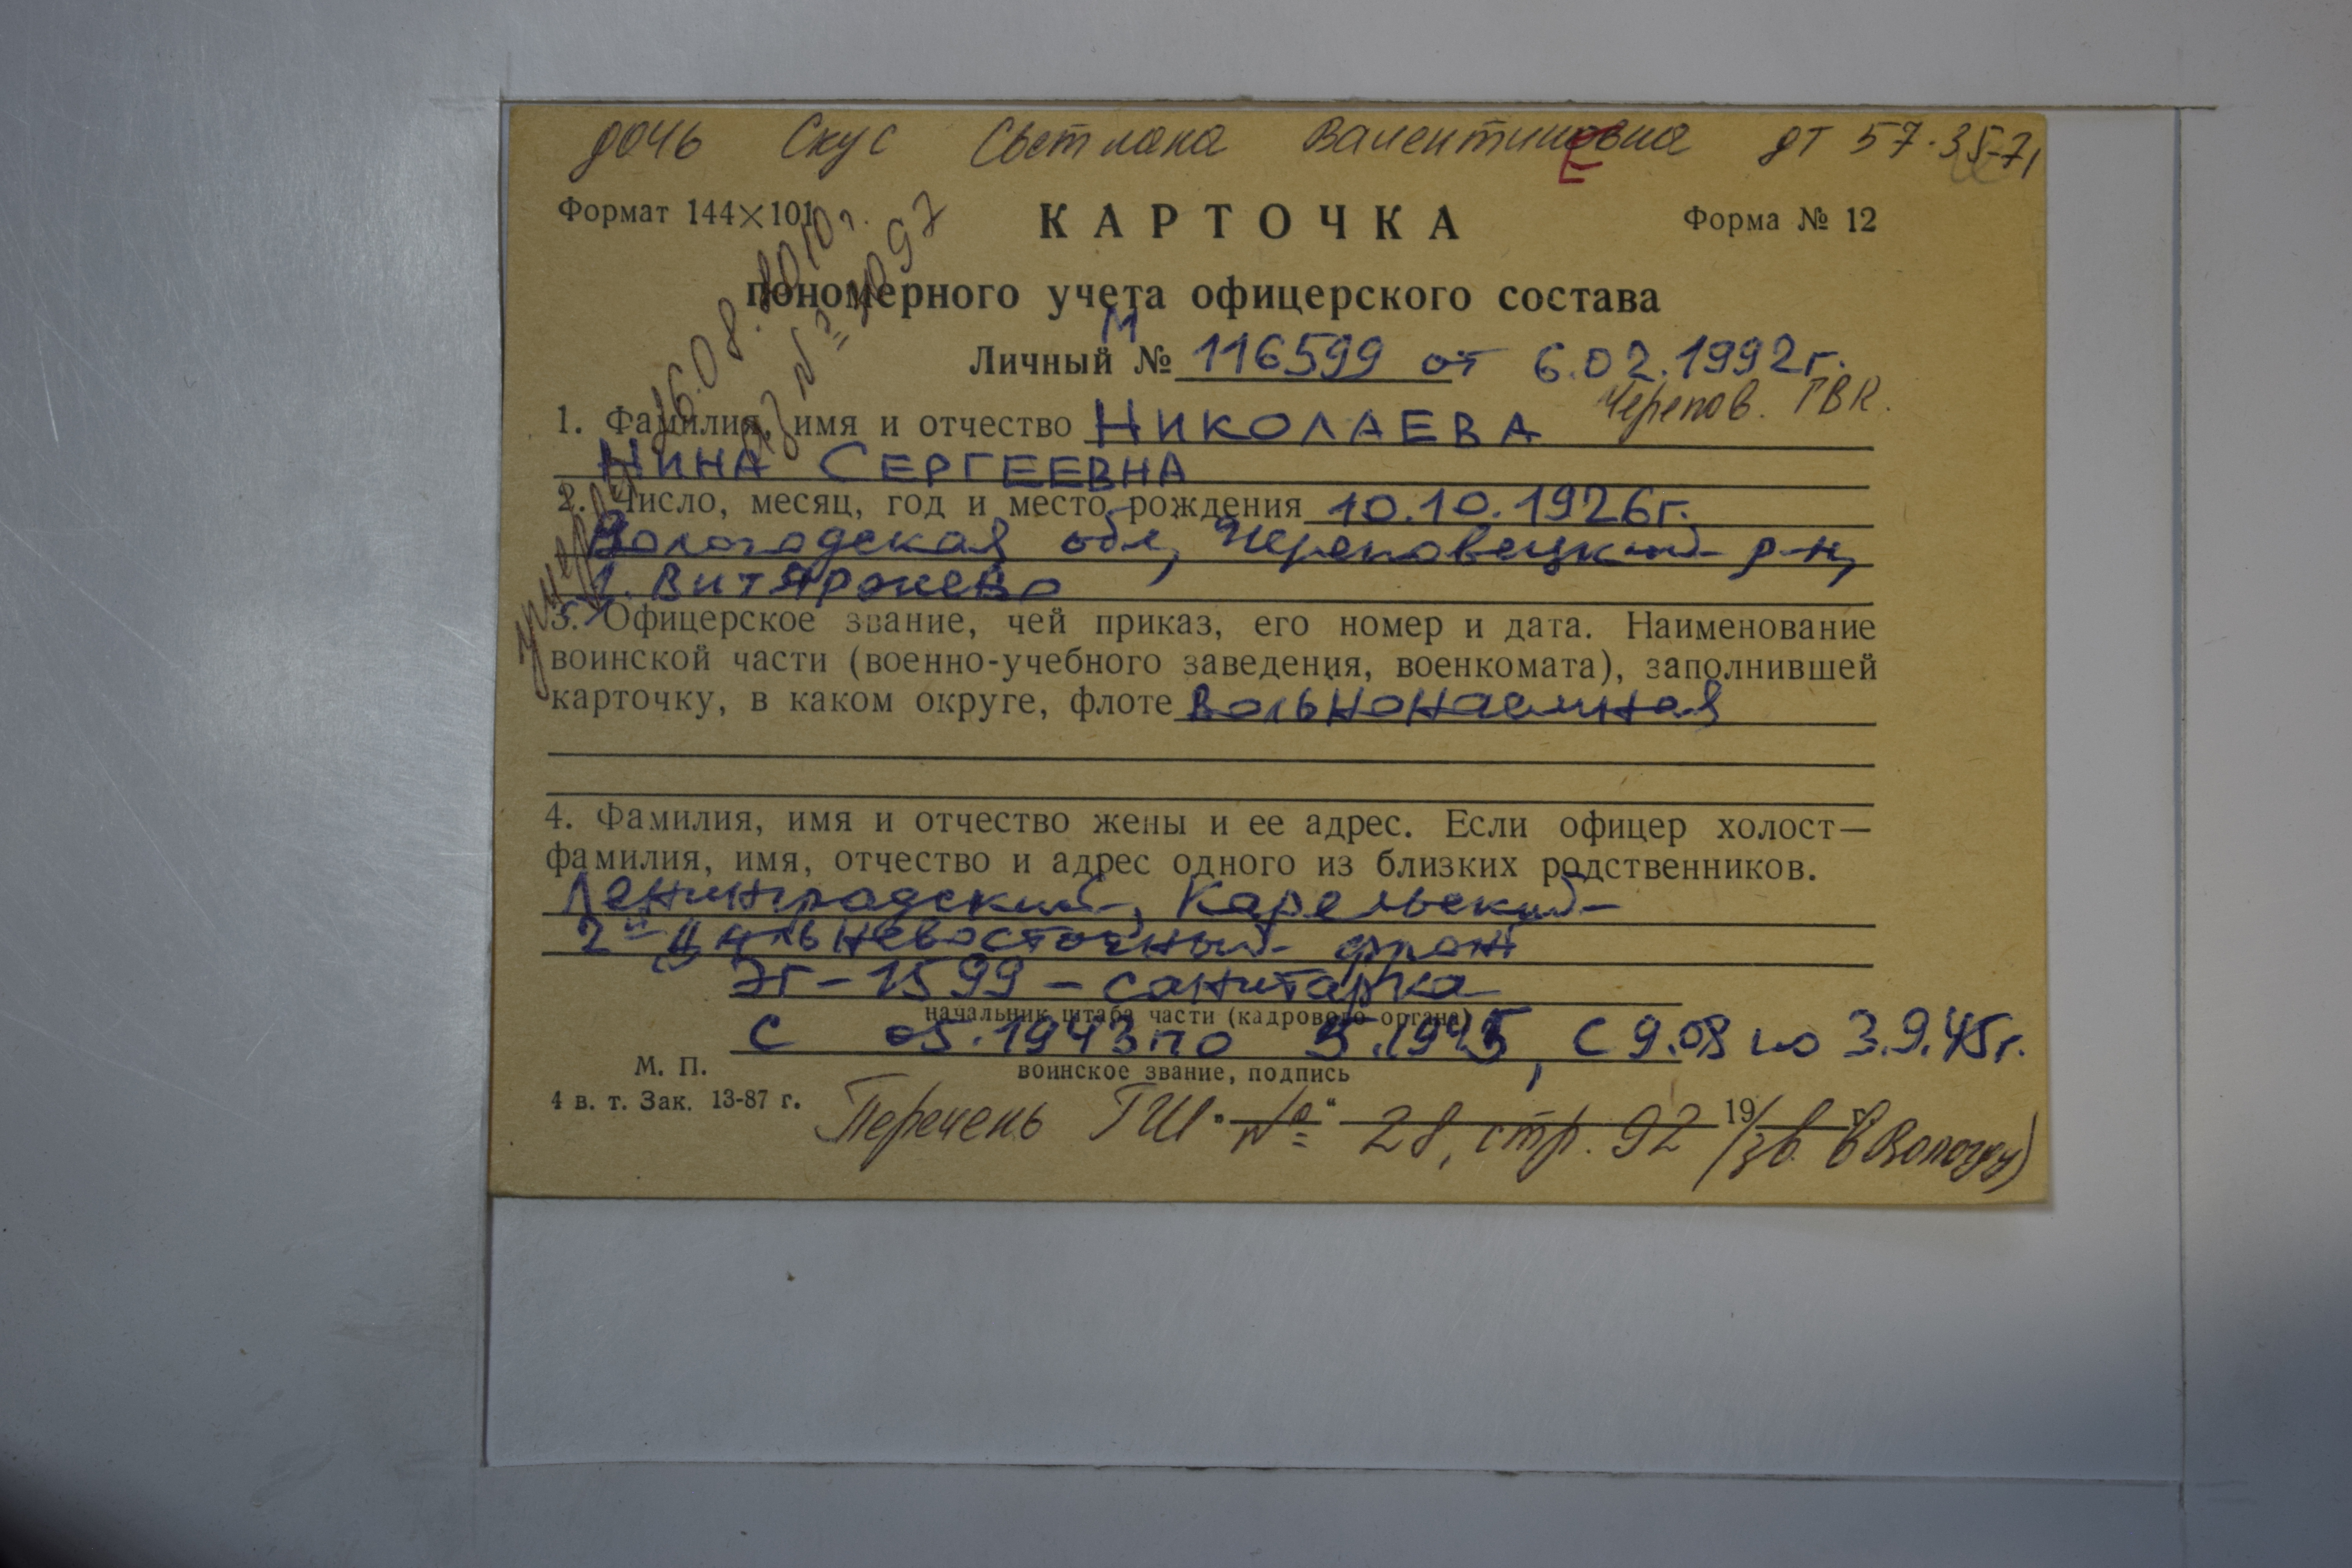 дочь Скус Светлана Валентиновна дт 57-35-71
Е
Формат 144×101 КАРТОЧКА Форма № 12
пономерного учета офицерского состава
М
Личный № 116599 от 6.02.1992г.
Черепов. ГВК.
1. Фамилия, имя и отчество НИКОЛАЕВА
НИНА СЕРГЕЕВНА
2. Число, месяц, год и место рождения 10.10.1926г.
Вологодская обл, Череповецкий р-н,
Витяржево
3. Офицерское звание, чей приказ, его номер и дата. Наименование
воинской части (военно-учебного заведения, военкомата), заполнившей
карточку, в каком округе, флоте вольнонаемная
4. Фамилия, имя и отчество жены и ее адрес. Если офицер холост—
фамилия, имя, отчество и адрес одного из близких родственников.
Ленинградский, Карельский
2й Дальневосточный фронт
ЭГ-1599 - санитарка
начальник штаба части (кадрового органа)
С 05.1943 по 5.1945, С 9.08 по 3.9.45г.
М. П. воинское звание, подпись
4 в. т. Зак. 13-87 г.
Перечень ГШ № 28, стр. 92 19 г. (зв. в Вологду)
умерла 16.08.2010г.
№ 4097